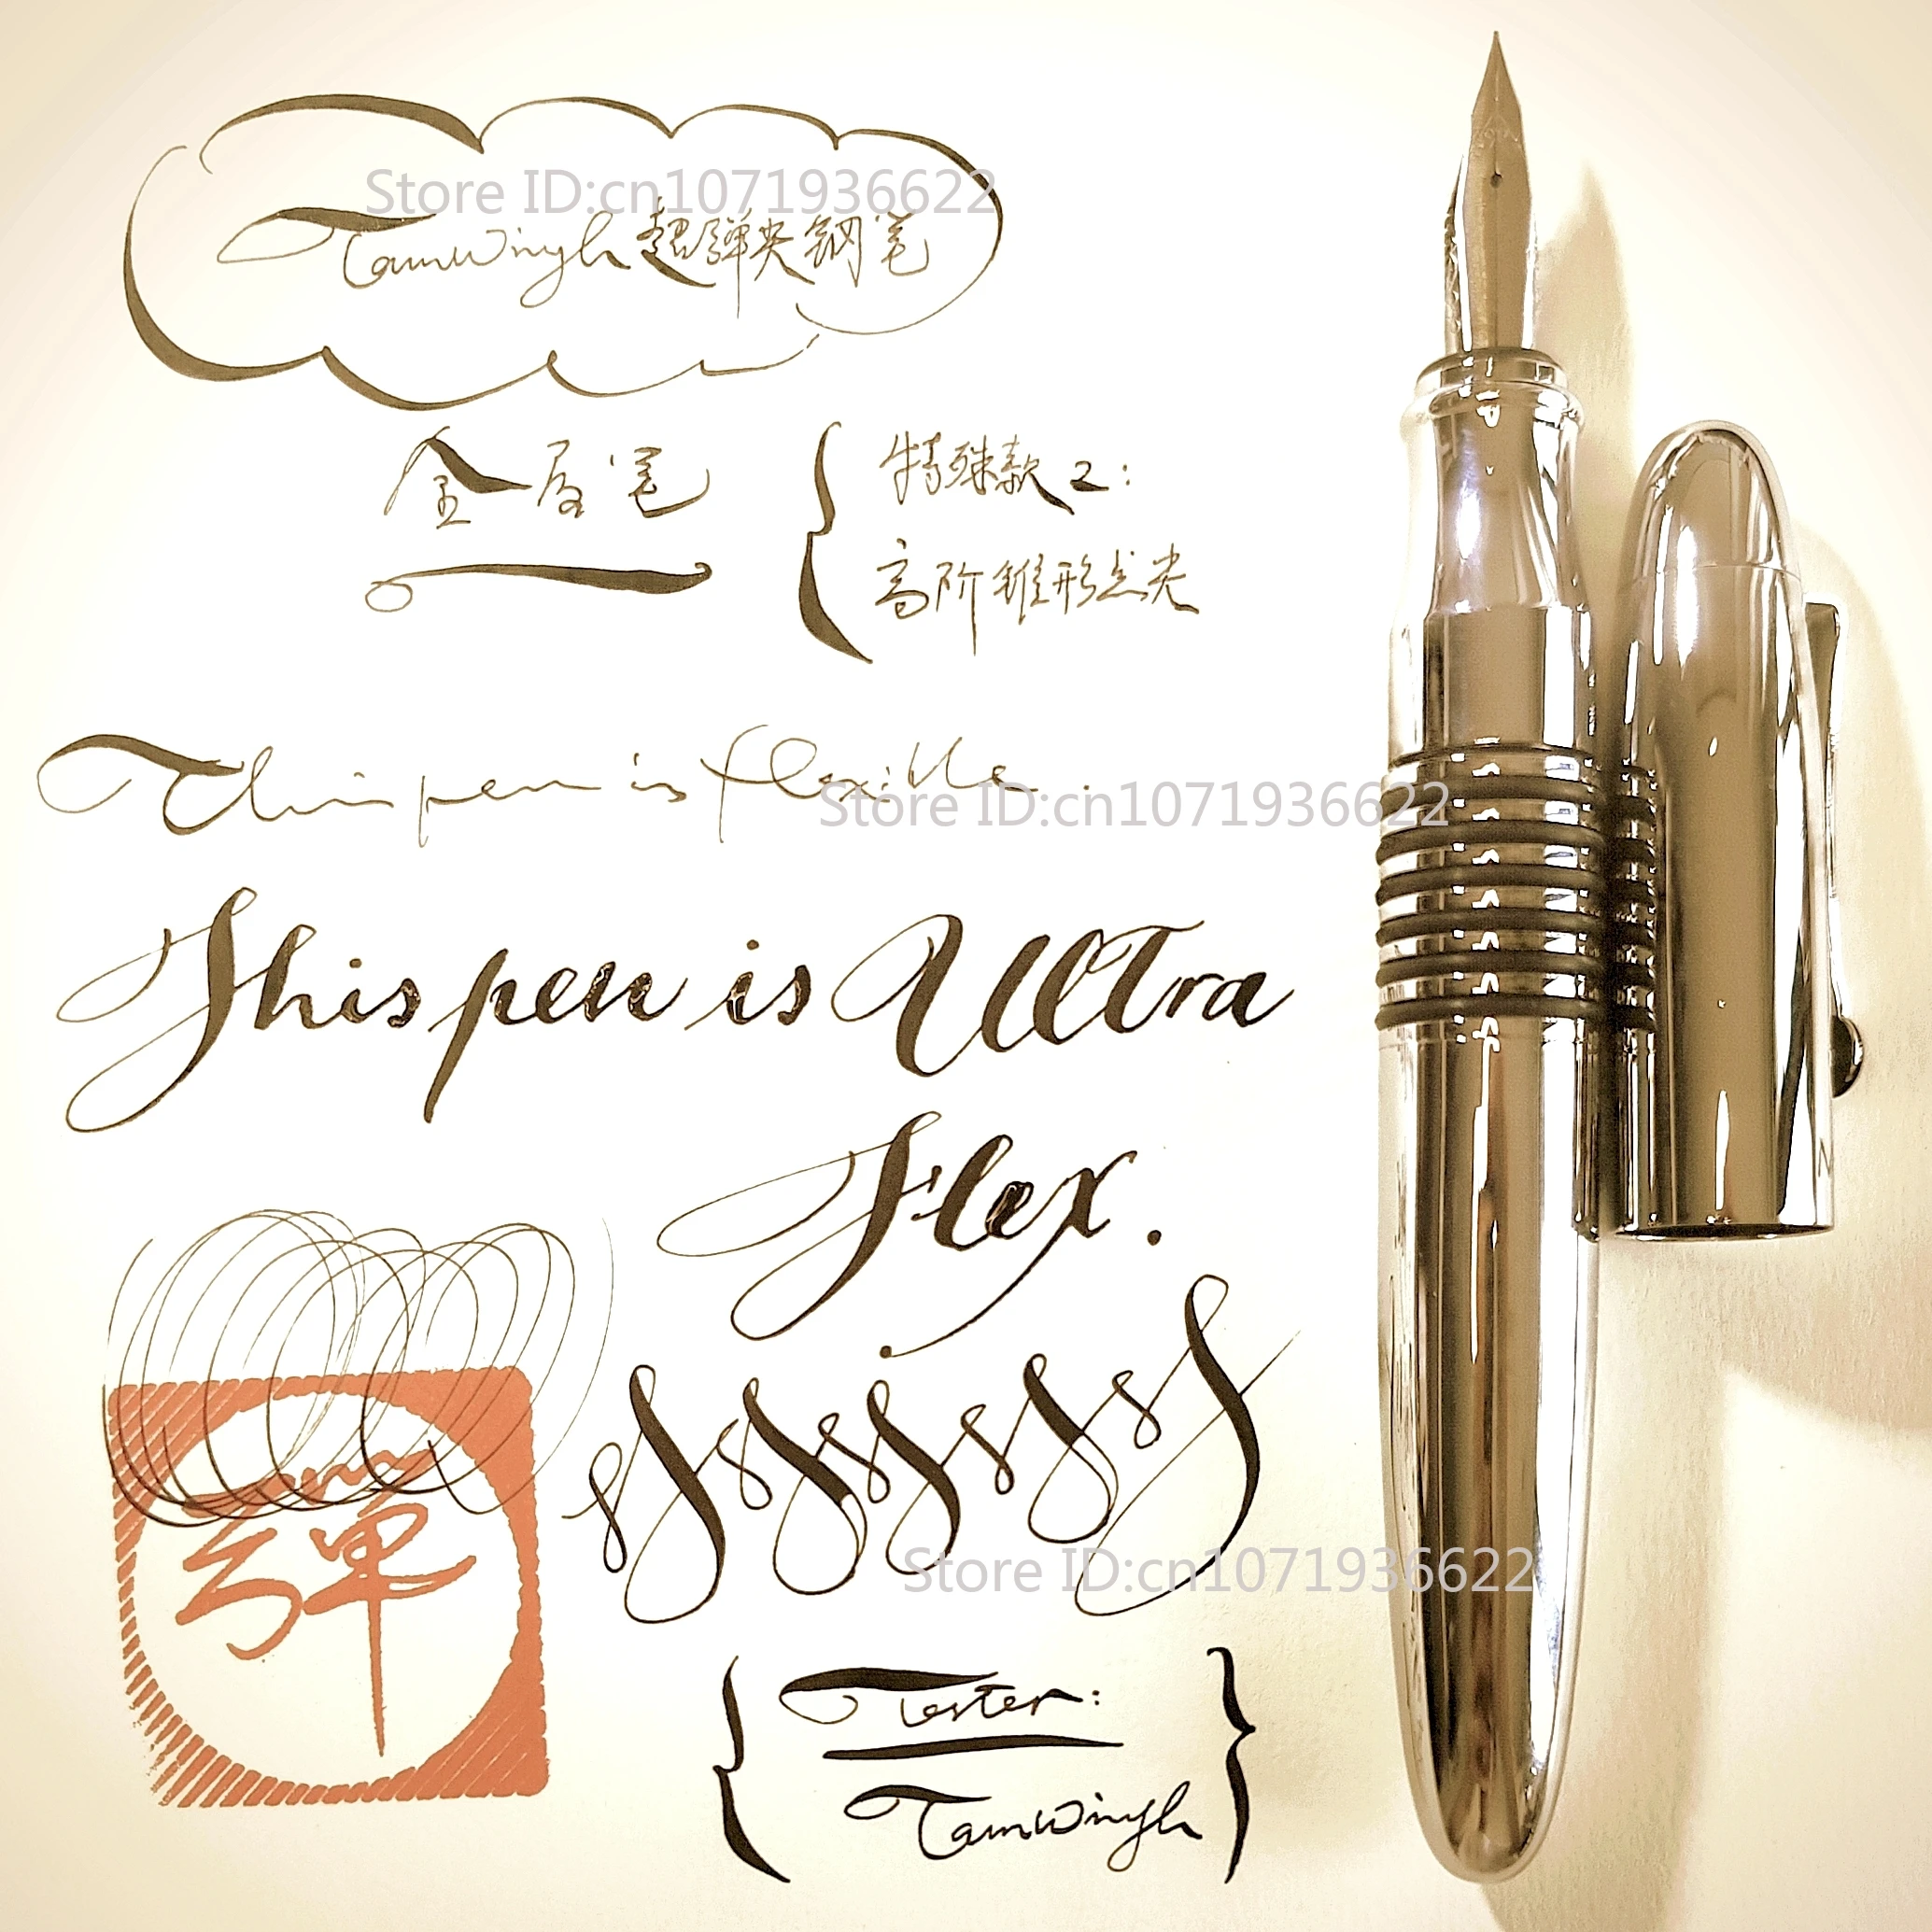 Store ID:cn1071936622
TamWingh超弹尖钢笔
金 笔
特殊款2:
高阶锥形长尖
This pen is flexible.
Store ID:cn1071936622
This pen is Ultra
Flex.
彈
Store ID:cn1071936622
Tester:
TamWingh